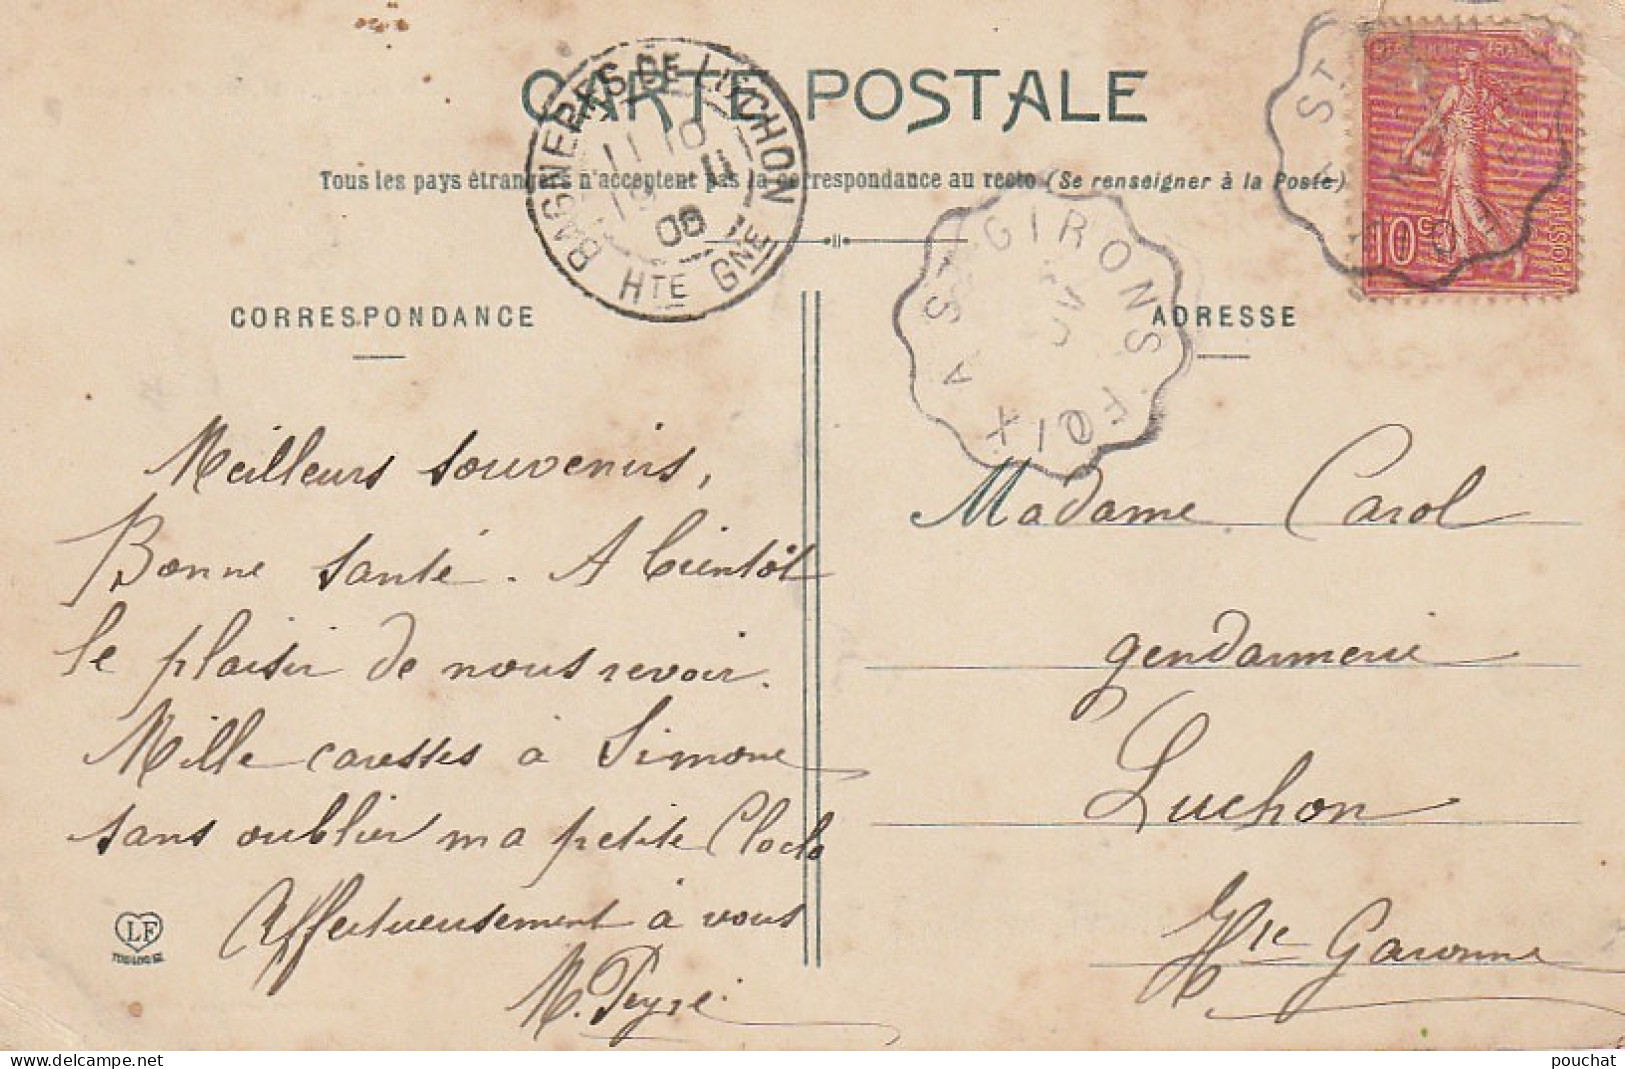 CARTE POSTALE
Tous les pays étrangers n'acceptent pas la correspondance au recto (Se renseigner à la Poste)
BAGNERES-DE-LUCHON
11 10
19 - 11
06
HTE GNE
ST-GIRONS A FOIX
10c
POSTES
CORRESPONDANCE
Meilleurs souvenirs,
Bonne santé. A bientôt
le plaisir de nous revoir.
Mille caresses à Simone
sans oublier ma petite Cloclo
Affectueusement à vous
M. Peyre
LF
TOULOUSE
ADRESSE
Madame Carol
gendarmerie
Luchon
Hte Garonne
pouchat